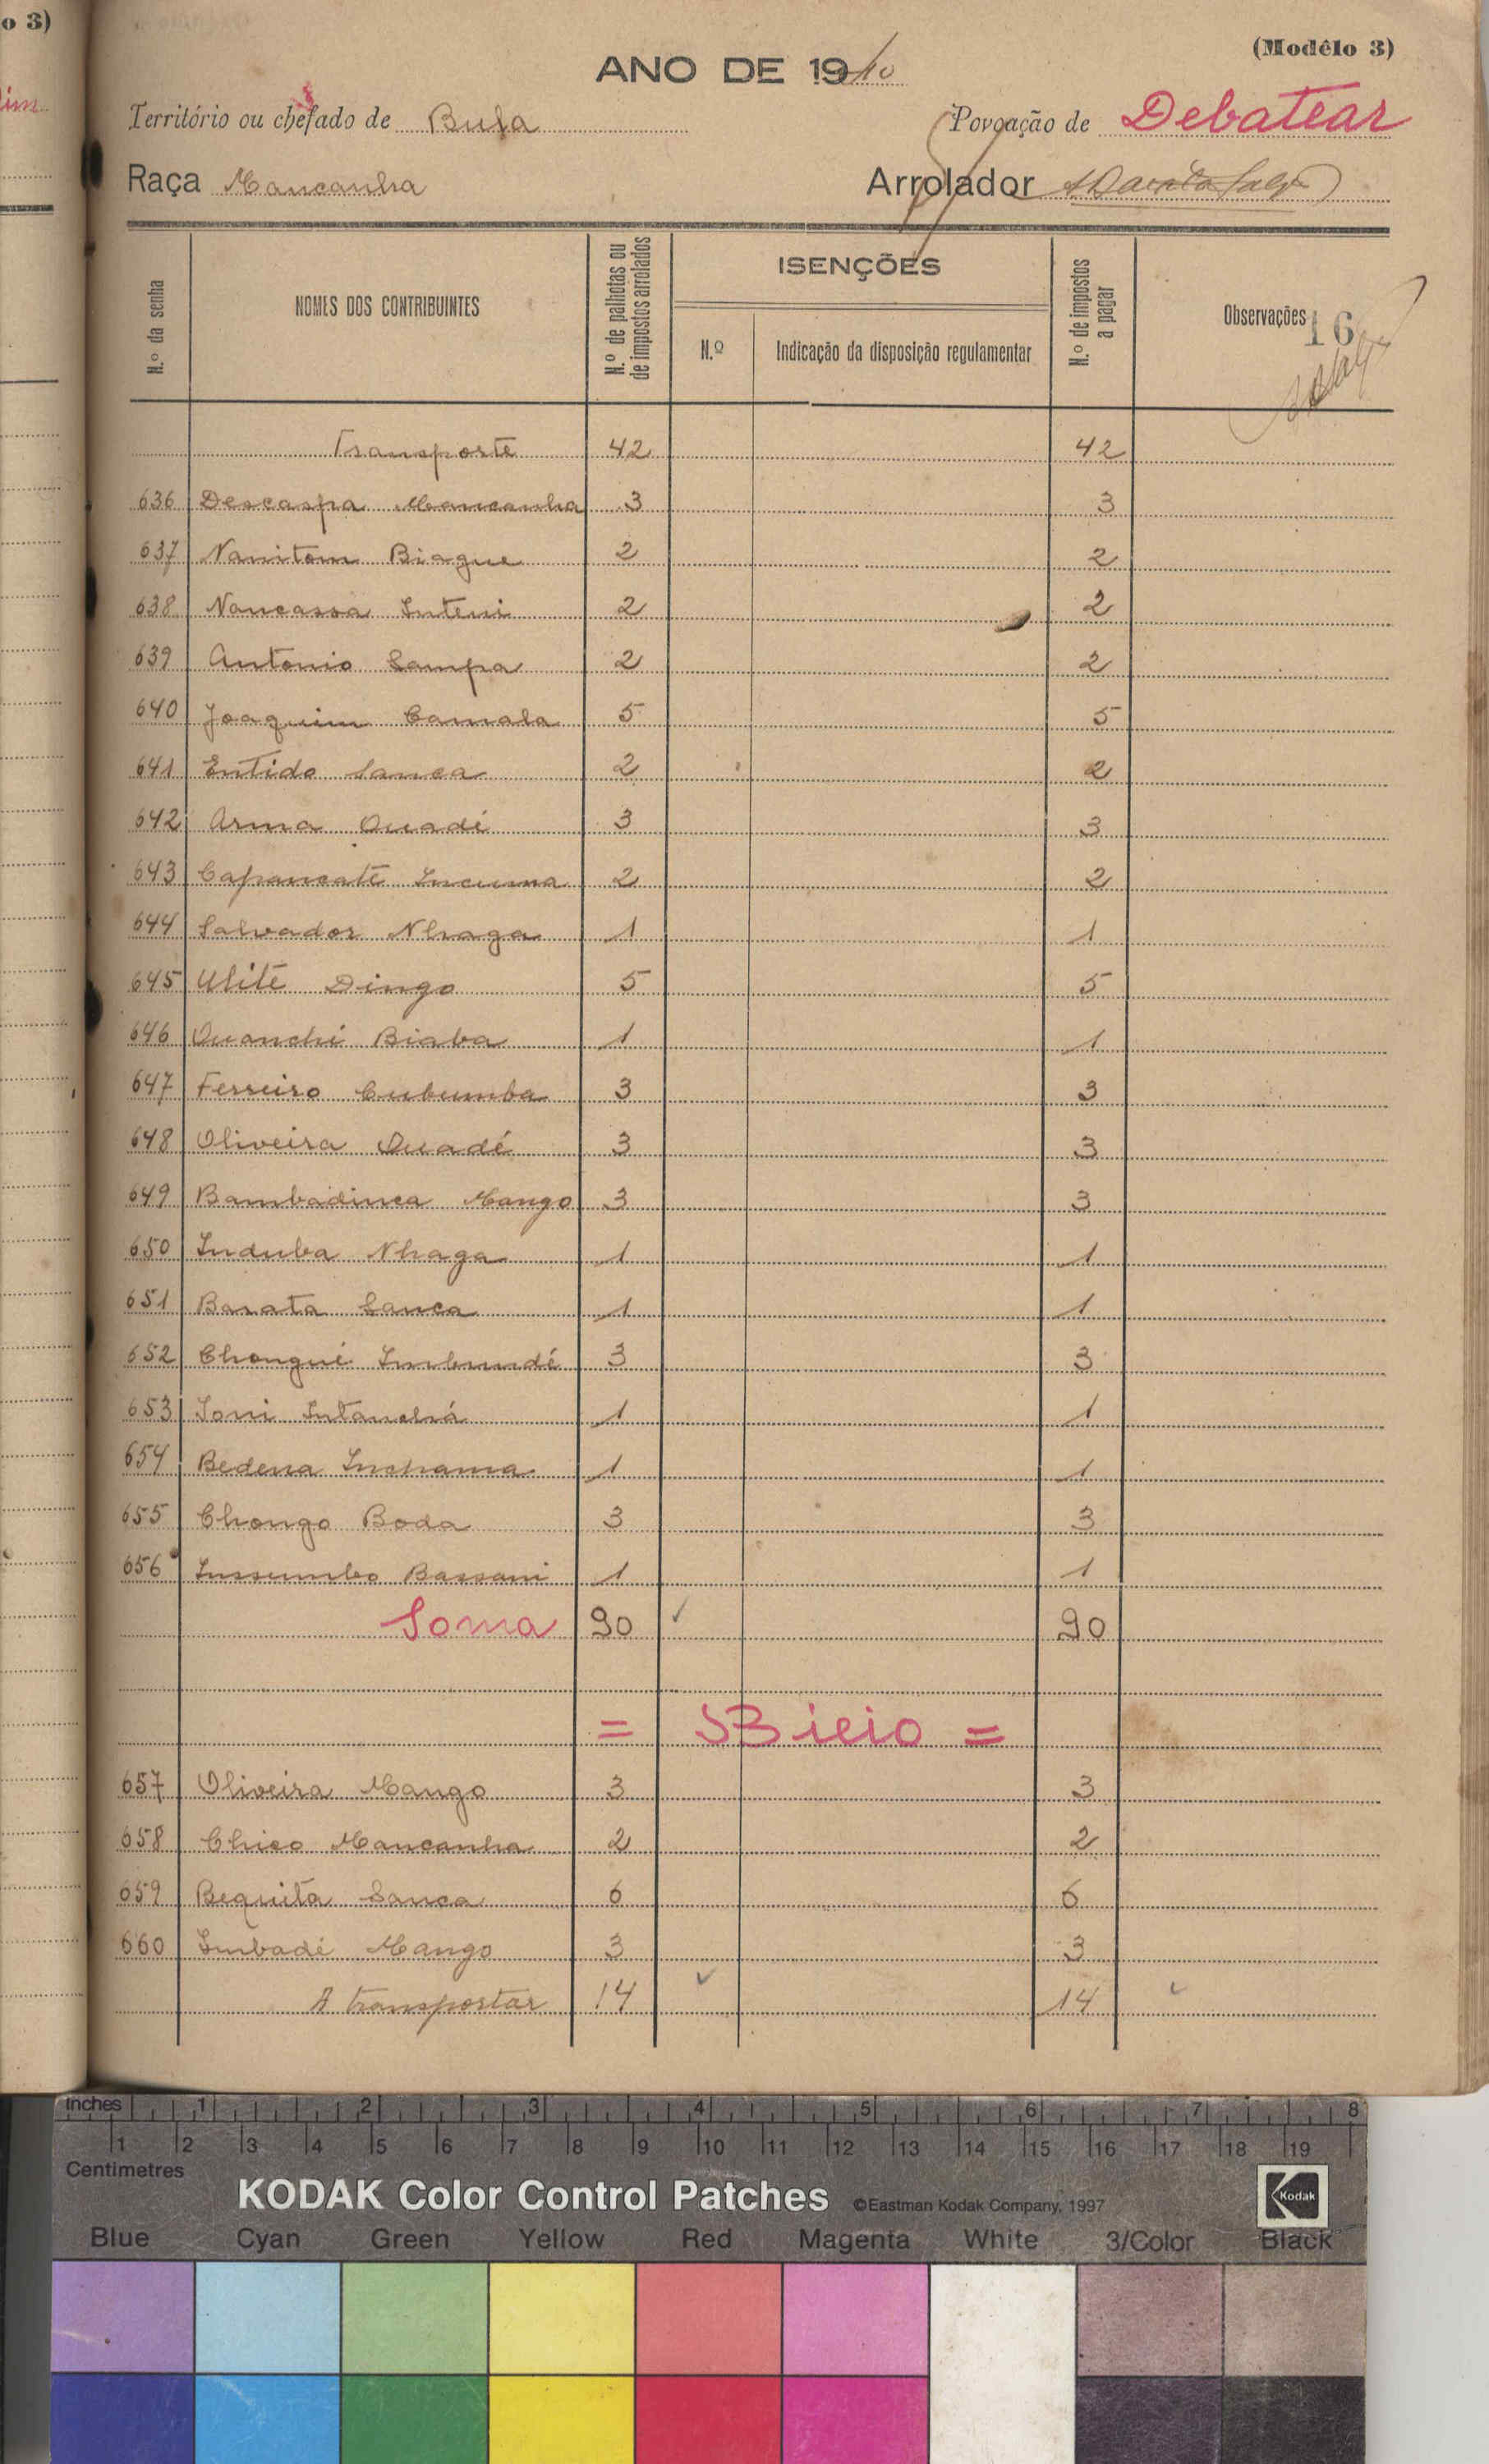 o 3)
(Modêlo 3)
ANO DE 1940
Território ou chefado de Bula Povoação de Debatear
Raça Mancanha Arrolador
N.º da senha NOMES DOS CONTRIBUINTES N.º de palhotas ou de impostos arrolados ISENÇÕES N.º Indicação da disposição regulamentar N.º de impostos a pagar Observações 16
Transporte 42 42
636 Descaspa Mancanha 3 3
637 Nanitom Biague 2 2
638 Nancassa Inteni 2 2
639 Antonio Sampa 2 2
640 Joaquim Camala 5 5
641 Entido Sanca 2 2
642 Arma Ouadi 3 3
643 Capancate Incuma 2 2
644 Salvador Nhaga 1 1
645 Ulite Dingo 5 5
646 Ouanchi Biaba 1 1
647 Ferreiro Cubumba 3 3
648 Oliveira Ouadé 3 3
649 Bambadinca Mango 3 3
650 Induba Nhaga 1 1
651 Barata Sanca 1 1
652 Chongui Imbundé 3 3
653 Joni Intanchá 1 1
654 Bedena Inchama 1 1
655 Chongo Boda 3 3
656 Inssumbo Bassani 1 1
Soma 90 90
= Bicio =
657 Oliveira Mango 3 3
658 Chico Mancanha 2 2
659 Bequita Sanca 6 6
660 Imbadé Mango 3 3
A transportar 14 14
Inches 1 2 3 4 5 6 7 8
Centimetres 1 2 3 4 5 6 7 8 9 10 11 12 13 14 15 16 17 18 19
KODAK Color Control Patches ©Eastman Kodak Company, 1997 Kodak
Blue Cyan Green Yellow Red Magenta White 3/Color Black